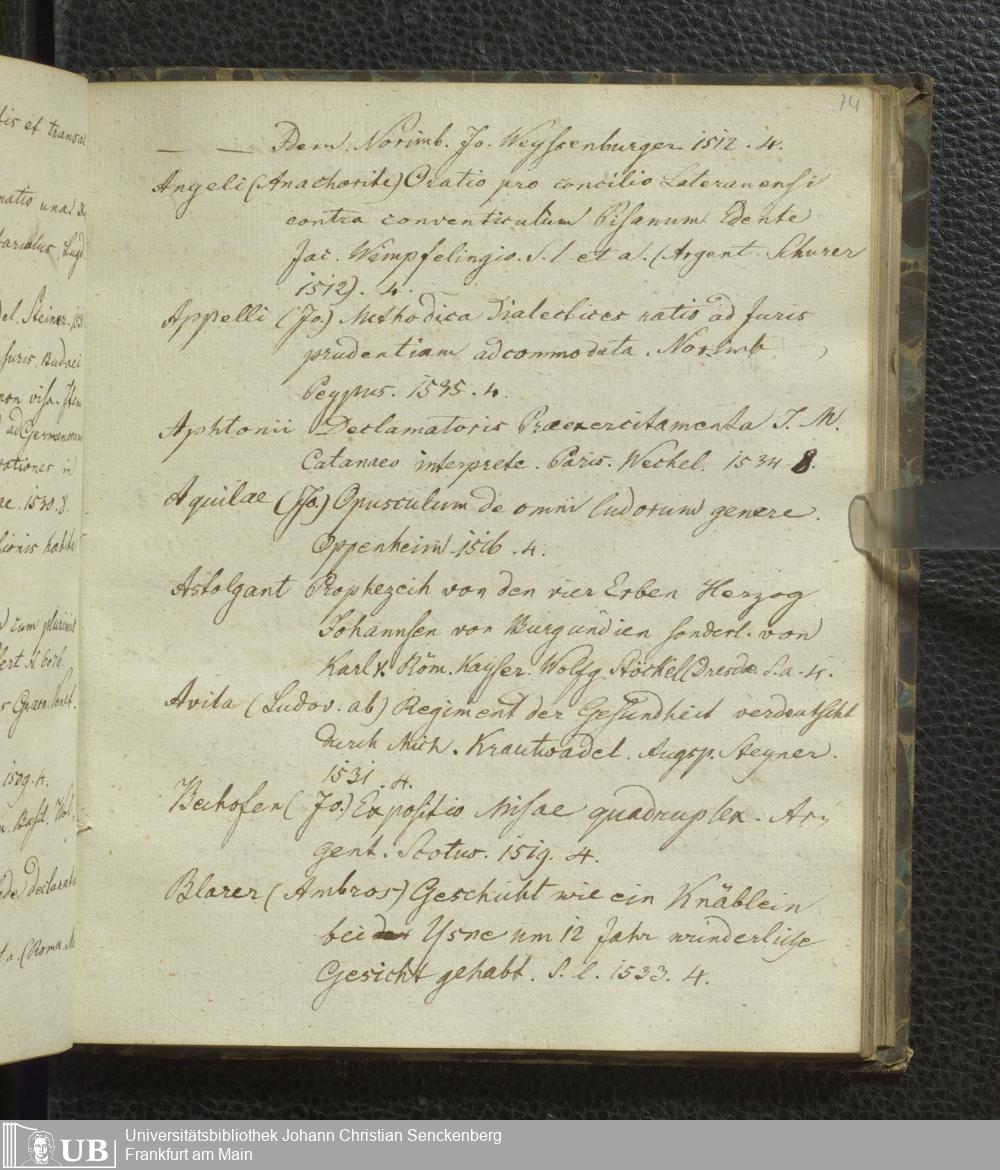 74
— — Idem. Norimb. Jo. Weyssenburger 1512. 4.
Angeli (Anachorite) Oratio pro concilio Lateranensi
contra conventiculum Pisanum Edente
Jac. Wimpfelingio. S. l. et a. (Argent. Schurer
1512). 4.
Appelli (Jo.) Methodica Dialectices ratio ad juris
prudentiam adcommodata. Norimb
Peypus. 1535. 4.
Aphtonii Declamatoris Praeexercitamenta I. M.
Catanaeo interprete. Paris. Wechel. 1534 8.
Aquilae (Jo.) Opusculum de omni ludorum genere.
Oppenheim. 1516. 4.
Astolgant Prophezeih von den vier Erben Herzog
Johannsen von Burgundien sonderl. von
Karl V. Röm. Kayser. Wolfg. Stöckel (Dresdae S. a. 4.
Avila (Ludov. ab) Regiment der Gesundheit verdeutscht
durch Mich. Krautwadel. Augsp. Steyner.
1531. 4.
Bechofen (Jo.) Expositio Missae quadruplex. Ar-
gent. Scotus. 1519. 4.
Blarer (Ambros) Geschicht wie ein Knäblein
bei Ysne um 12 Jahr wunderliche
Gesicht gehabt. S. l. 1533. 4.
tis et transal
matio una
tariolus. Lugd
del. Steiner. 153
juris. Budaei
non visa. Item
ad Germanorum
rationes in
ne. 1530. 8.
tionis habite
cum plurimis
fert
s Graece. Venet.
1509. 4.
Basil.
de declarati
a. (Roma. M
UB
Universitätsbibliothek Johann Christian Senckenberg
Frankfurt am Main